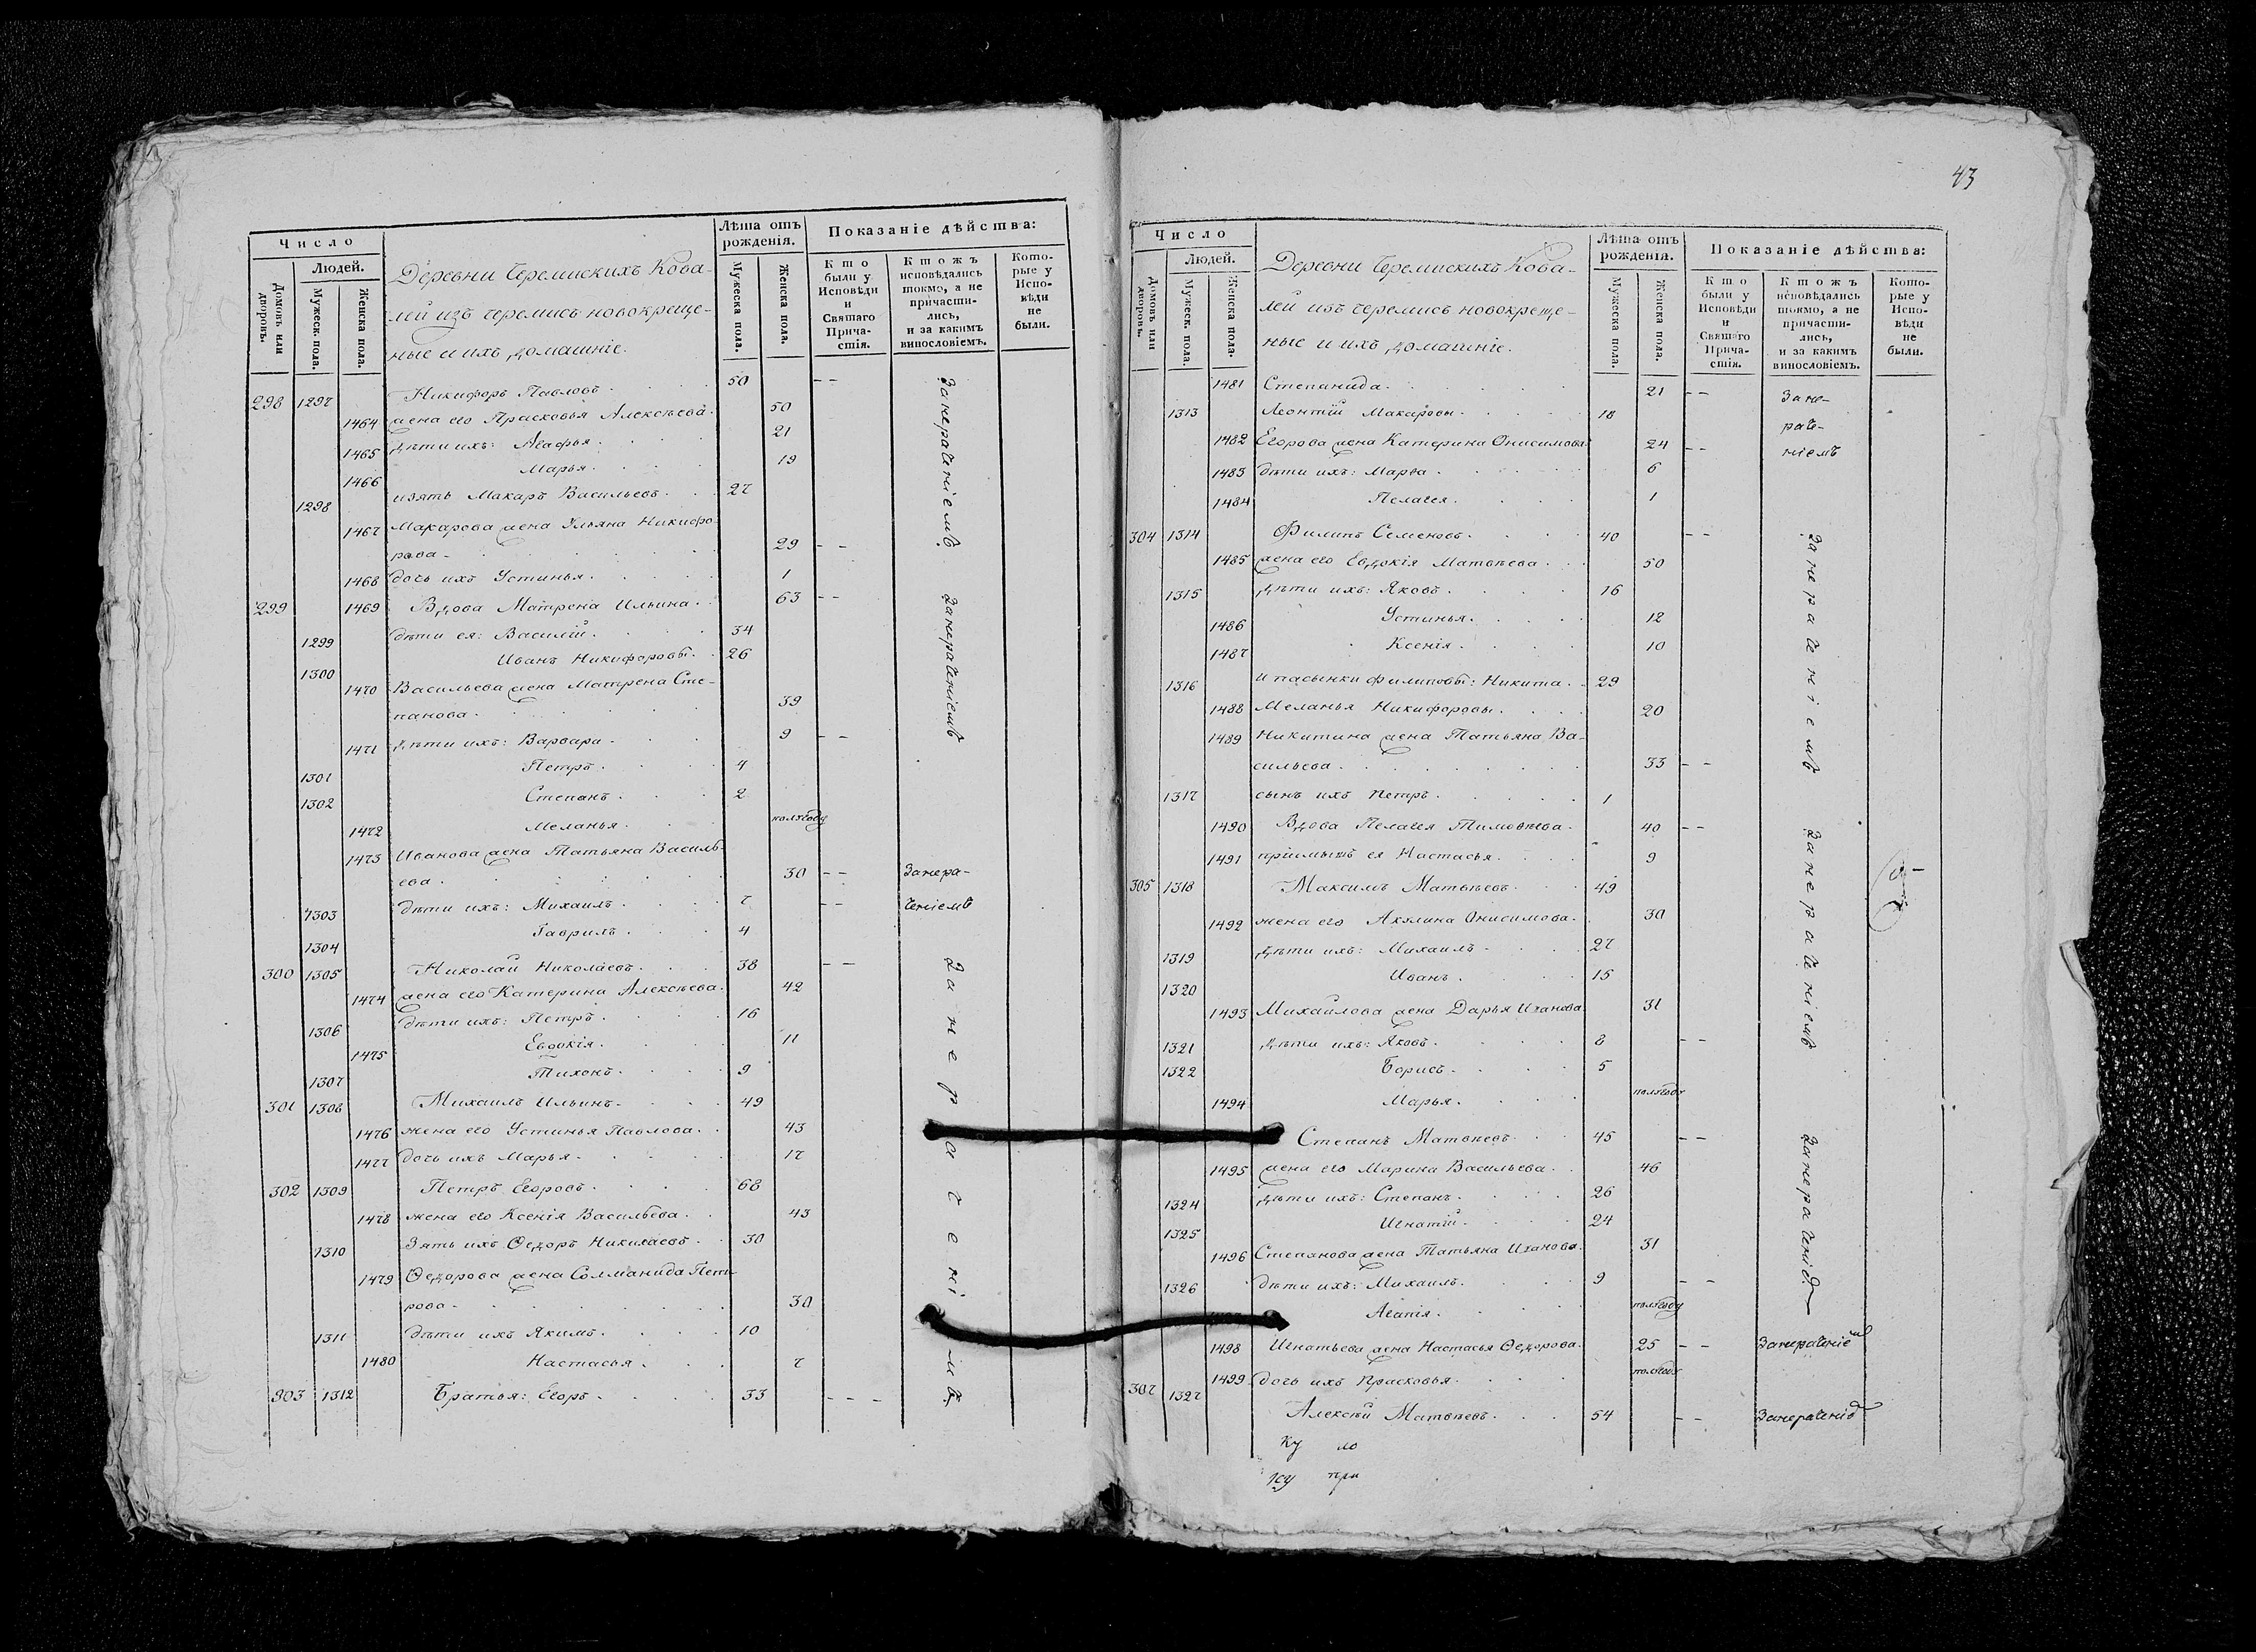 43
Число
Людей.
Домовъ или дворовъ.
Мужеск. пола.
Женска пола.
Деревни Черемискихъ Кова-
лей изъ черемисъ новокреще-
ные и ихъ домашніе.
Лѣта отъ рожденія.
Мужеска пола.
Женска пола.
Показаніе дѣйства:
Кто были у Исповѣди и Святаго Причастія.
Ктожъ исповѣдались токмо, а не причастились, и за какимъ винословіемъ.
Которые у Исповѣди не были.
298 1297 Никифоръ Павловъ 50 --
1464 жена его Прасковья Алексѣева 50
1465 дѣти ихъ: Агафья 21
1466 Марья 19
1298 изять Макаръ Васильевъ 27
1467 Макарова жена Ульяна Никифо-
рова 29 --
1468 дочь ихъ Устинья 1
занераченіемъ
299 1469 Вдова Матрена Ильина 63 --
1299 дѣти ея: Василій 34
1300 Иванъ Никифоровы 26
1470 Васильева жена Матрена Сте-
панова 39
1471 дѣти ихъ: Варвара 9 --
1301 Петръ 4
1302 Степанъ 2
1472 Меланья полгоду
занераченіемъ
1473 Иванова жена Татьяна Василь-
ева 30 -- Занера-
1303 дѣти ихъ: Михаилъ 7 -- ченіемъ
1304 Гаврилъ 4
300 1305 Николай Николаевъ 38 --
1474 жена его Катерина Алексѣева 42
1306 дѣти ихъ: Петръ 16
1475 Евдокія 11
1307 Тихонъ 9
301 1308 Михаилъ Ильинъ 49
1476 жена его Устинья Павлова 43
1477 дочь ихъ Марья 17
302 1309 Петръ Егоровъ 68
1478 жена его Ксенія Васильева 43
1310 Зять ихъ Ѳедоръ Николаевъ 30
1479 Ѳедорова жена Соломанида Пет-
рова 30
1311 дѣти ихъ Якимъ 10
1480 Настасья 7
303 1312 Братья: Егоръ 33 ---
занераченіимъ
Число
Людей.
Домовъ или дворовъ.
Мужеск. пола.
Женска пола.
Деревни Черемискихъ Кова-
лей изъ черемисъ новокреще-
ные и ихъ домашніе.
Лѣта отъ рожденія.
Мужеска пола.
Женска пола.
Показаніе дѣйства:
Кто были у Исповѣди и Святаго Причастія.
Ктожъ исповѣдались токмо, а не причастились, и за какимъ винословіемъ.
Которые у Исповѣди не были.
1481 Степанида 21 -- Зане-
1313 Леонтій Макаровы 18 раче-
1482 Егорова жена Катерина Онисимова 24 -- ніемъ
1483 дѣти ихъ: Марѳа 6
1484 Пелагея 1
304 1314 Филипъ Семеновъ 40 --
1485 жена его Евдокія Матвѣева 50
1315 дѣти ихъ: Яковъ 16
1486 Устинья 12
1487 Ксенія 10
1316 и пасынки Филиповы: Никита 29
1488 Меланья Никифоровы 20
1489 Никитина жена Татьяна Ва-
сильева 33 --
1317 сынъ ихъ Петръ 1
занераченіемъ
1490 Вдова Пелагея Тимоѳѣева 40 --
1491 пріимышъ ея Настасья 9
305 1318 Максимъ Матвѣевъ 49
1492 жена его Акулина Онисимова 30
1319 дѣти ихъ: Михаилъ 27
1320 Иванъ 15
1493 Михайлова жена Дарья Иванова 31
1321 дѣти ихъ: Яковъ 8 --
1322 Борисъ 5
1494 Марья полгоду
занераченіемъ
Степанъ Матвѣевъ 45 --
1495 жена его Марина Васильева 46
1324 дѣти ихъ: Степанъ 26
1325 Игнатій 24
1496 Степанова жена Татьяна Иванова 31
1326 дѣти ихъ: Михаилъ 9 --
Агапія полгоду
занераченіемъ
1498 Игнатьева жена Настасья Ѳедорова 25 -- Занераченіемъ
1499 дочь ихъ Прасковья полгоду
307 1327 Алексѣй Матвѣевъ 54 -- Занераченіемъ
ку ло
ку при